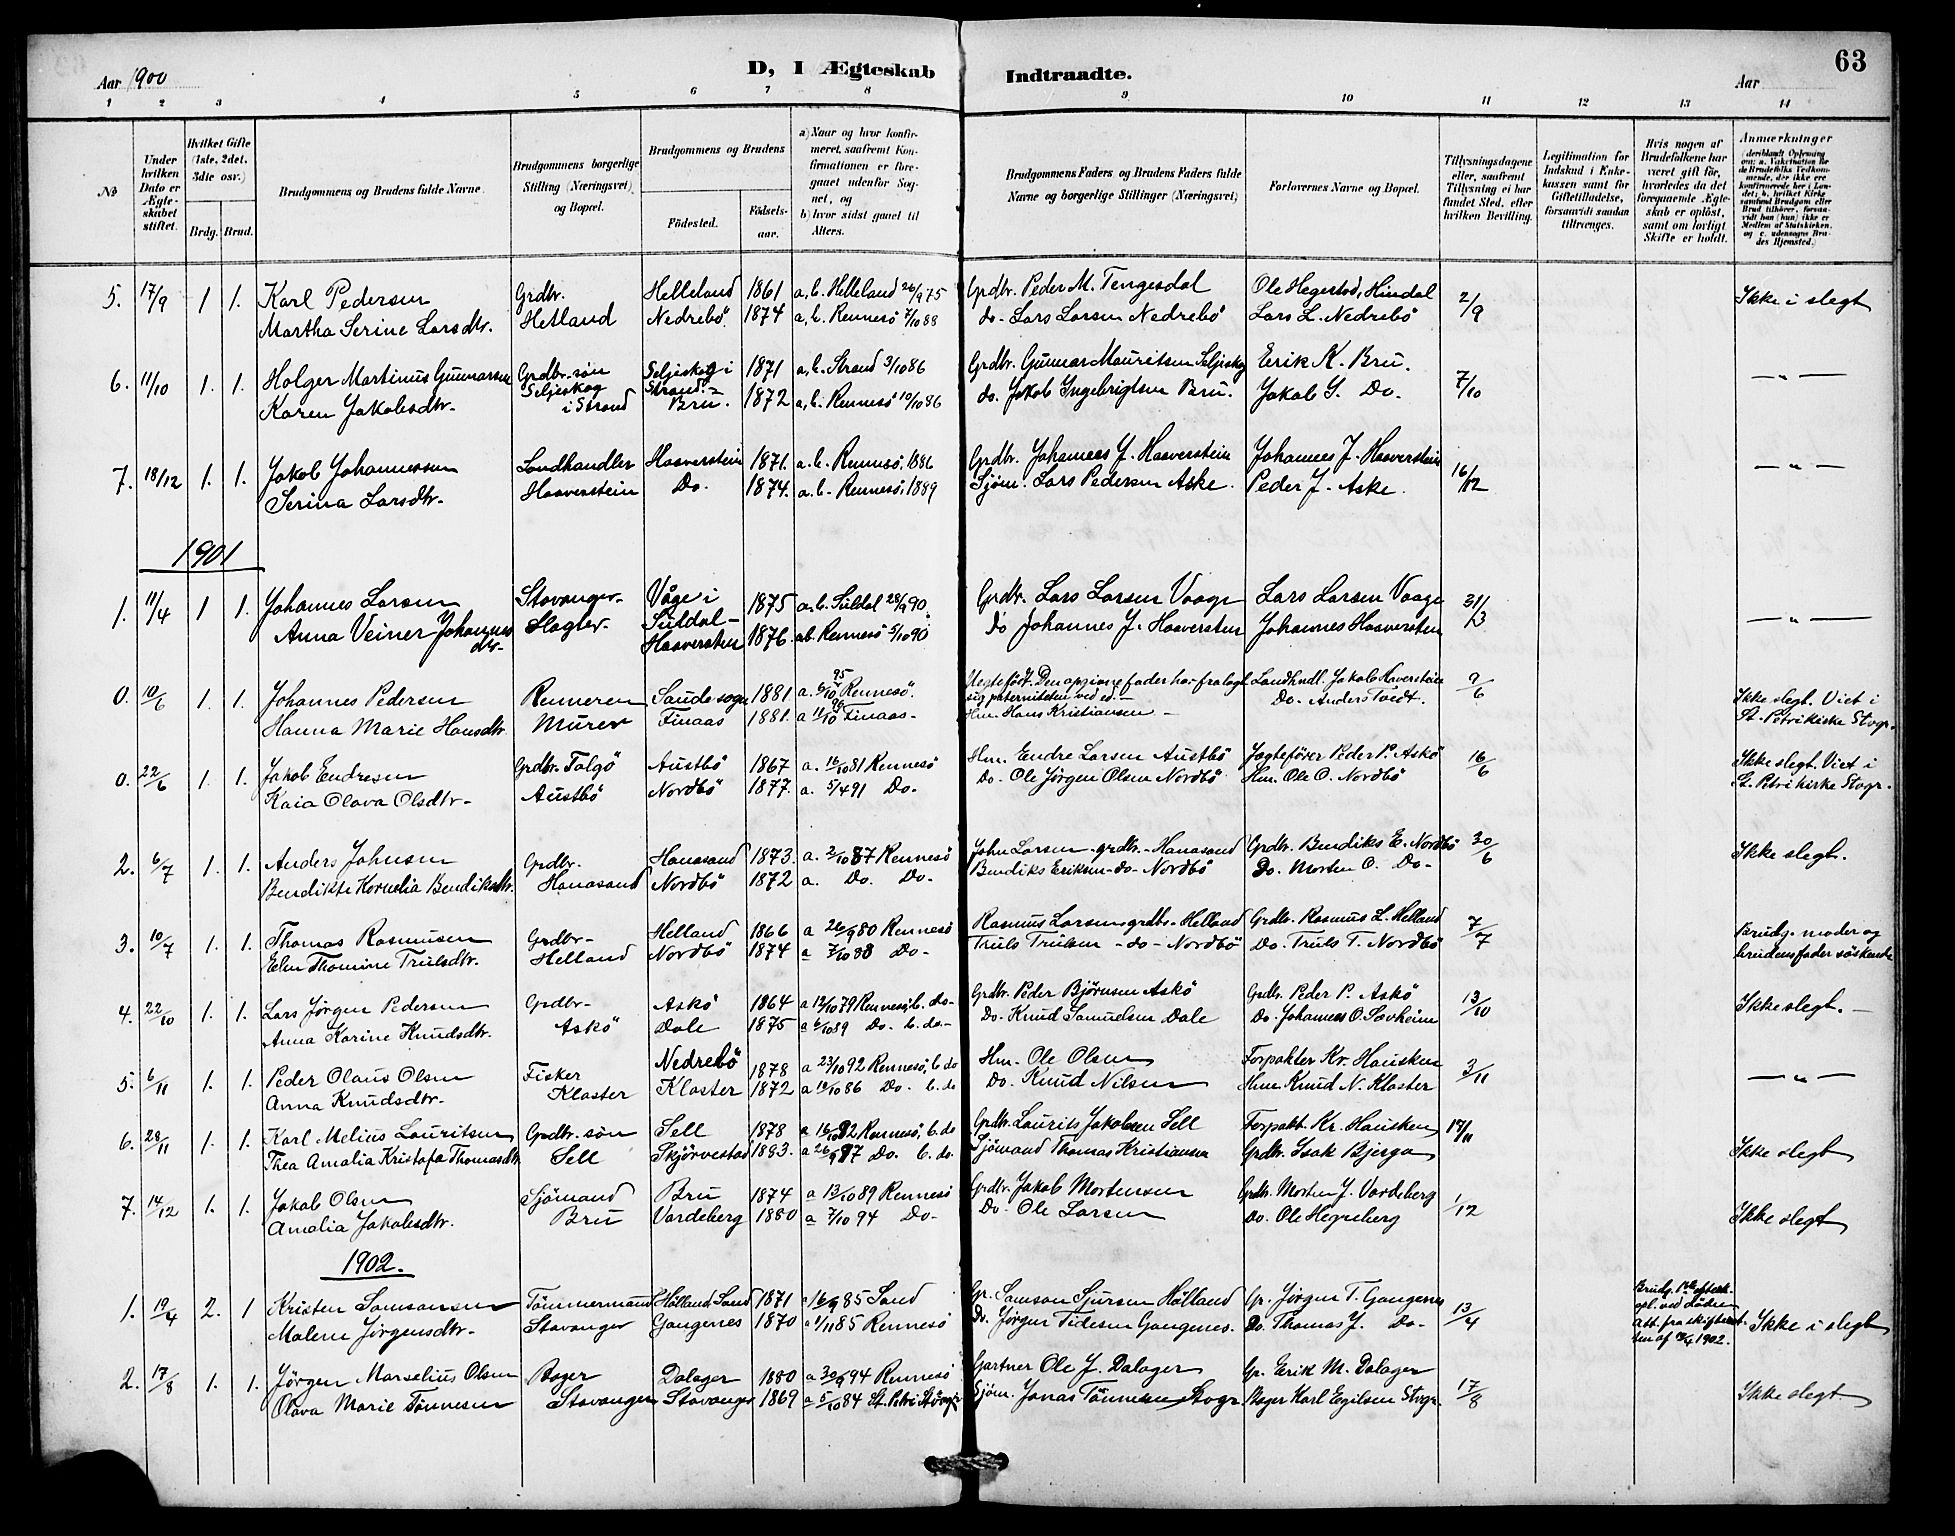 Aar 1900
D, I Ægteskab Indtraadte.
63
Aar
1 2 3 4 5 6 7 8 9 10 11 12 13 14
№
Under hvilken Dato er Ægteskabet stiftet.
Hvilket Gifte (1ste, 2det, 3die osv.)
Brdg. Brud.
Brudgommens og Brudens fulde Navne.
Brudgommens borgerlige Stilling (Næringsvei) og Bopæl.
Brudgommens og Brudens
Fødested.
Fødselsaar.
a) Naar og hvor konfirmeret, saafremt Konfirmationen er foregaaet udenfor Sognet, og
b) hvor sidst gaaet til Alters.
Brudgommens Faders og Brudens Faders fulde Navne og borgerlige Stillinger (Næringsvei)
Forlovernes Navne og Bopæl.
Tillysningsdagene eller, saafremt Tillysning ei har fundet Sted, efter hvilken Bevilling.
Legitimation for Indskud i Enkekassen samt for Giftetilladelse, forsaavidt saadan tiltrænges.
Hvis nogen af Brudefolkene har været gift før, hvorledes da det foregaaende Ægteskab er opløst, samt om lovligt Skifte er holdt.
Anmærkninger
5. 17/9 1 1. Karl Pedersen Grdbr. Helleland 1861 a, b. Helleland 26/9 75 Grdbr. Peder M. Tengesdal Ole Hegestad, Hindal 2/9 Ikke i slegt
Martha Serine Larsdtr. Hetland Nedrebö 1874 a, b. Rennesö 7/10 88 do- Lars Larsen Nedrebö Lars L. Nedrebö
6. 11/10 1. 1. Holger Martinus Gunnarsen Grdbr. søn Seljeskog i Strand Seljeskog i Strand- 1871 a, b. Strand 3/10 86 Grdbr. Gunnar Mauritsen Seljeskog Erik K. Bru. 7/10 — „ —
Karen Jakobsdtr. Bru. 1872 a, b. Rennesö 10/10 86 do. Jakob Ingebrigtsen Bru. Jakob I. Do.
7. 18/12 1. 1. Jakob Johannessen Landhandler Haaverstein 1871. a. b. Rennesö, 1886 Grdbr. Johannes J. Haaverstein Johannes J. Haaverstein 16/12 — „ —
Serina Larsdtr. Haaverstein Do. 1874. a. b. Rennesö, 1889 Sjøm. Lars Pedersen Aske. Peder J. Aske.
1901
1. 11/4 1 1. Johannes Larsen Stavanger- Våge i Suldal- 1875 a, b. Suldal 28/9 90. Grdbr. Lars Larsen Vaage Lars Larsen Vaage 31/3 — „ —
Anna Veiner Johannesdtr- Slagter. Haaverstein 1876. ab. Rennesö 5/10 90 do Johannes J. Haaverstein Johannes Haaverstein
0. 10/6 1. 1. Johannes Pedersen Renneren Saude sogn 1881 a. 6/10 95 Rennesö. Uegte født. Den opgivne fader har fralagt sig paterniteten ved ed.- Landhndl. Jakob Haverstein 9/6 Ikke slegt. Viet i
Hanna Marie Hansdtr. Murer Finaas 1881. a 11/10 96 Finaas- Hm. Hans Kristiansen - Do- Anders Tvedt. St. Petrikirke Stvgr.
0. 22/6 1. 1. Jakob Endresen Grdbr. Talgö Austbö 1867 a. 16/10 81 Rennesö Hm. Endre Larsen Austbö Jagtefører Peder P. Askö 16/6 Ikke slegt. Viet i
Kaia Olava Olsdtr- Austbö Nordbö 1877. a. 5/4 91 Do- Do- Ole Jörgen Olsen Nordbö Hm. Ole O. Nordbö St. Petri kirke Stvgr.
2. 6/7 1. 1. Anders Johnsen Grdbr. Hanasand 1873. a. 2/10 87 Rennesö John Larsen grdbr.- Hanasand Grdbr. Bendiks E. Nordbö 30/6 Ikke slegt.
Bendikte Kornelia Bendiksdtr. Hanasand Nordbö 1872 a. Do. Do- Bendiks Eriksen-do- Nordbö Do. Morten O. Do-
3. 10/7 1. 1. Thomas Rasmusen Grdbr- Helland 1866 a 26/9 80 Rennesö Rasmus Larsen grdbr- Helland Grdbr. Rasmus L. Helland 7/7 Brudg. moder og
Elen Thomine Trulsdtr. Helland Nordbö 1874 a 7/10 88 Do- Truls Trulsen -do- Nordbö Do. Truls T. Nordbö brudens fader söskende
4. 22/10 1. 1. Lars Jørgen Pedersen Grdbr- Askö 1864 a 12/10 79 Rennesö, b. do- Grdbr. Peder Björnsen Askö Grdbr. Peder P. Askö 13/10 Ikke slegt.-
Anna Karine Knudsdtr. Askö Dale 1875 a 6/10 89 Do. b. do- Do. Knud Samuelsen Dale Do. Johannes O. Sævheim
5. 6/11 1. 1. Peder Olaus Olsen Fisker Nedrebö 1878 a 23/10 92 Rennesö, b. do Hm. Ole Olsen Forpakter Kr. Hausken 3/11 — „ —
Anna Knudsdtr. Kloster Kloster 1872 a 10/10 86 Do- b. do Do. Knud Nilsen Hm. Knud N. Kloster
6. 28/11 1. 1. Karl Melius Lauritsen Grdbr. søn Sell 1878 a 16/10 92 Rennesö, b. do Grdbr. Laurits Jakobsen Sell Forpakt. Kr. Hausken 17/11 Ikke slegt
Thea Amalia Kristofa Thomasdtr. Sell Skjörvestad 1883. a 26/9 97 Do. b. do. Sjömand Thomas Kristiansen Grdbr. Isak Bjerga
7. 14/12 1. 1. Jakob Olsen Sjömand Bru 1874 a 13/10 89 Rennesö Grdbr. Jakob Mortensen Grdbr. Morten J. Vardeberg 1/12 Ikke slegt
Amalia Jakobsdtr. Bru Vardeberg 1880 a 7/10 94 Do- Do. Ole Larsen Do. Ole Hegreberg
1902.
1. 19/4 2. 1 Kristen Samsonsen Tömmermand Hålland, Sand 1871 a 16/9 85 Sand Gr. Samson Sjursen Hålland Gr. Jörgen T. Gangenes 13/4 Ikke i slegt
Malene Jörgensdtr. Stavanger Gangenes 1870 a 1/11 85 Rennesö Do. Jörgen Tidesen Gangenes. Do. Thomas J. Do- Att. fra skifteretten af 1902.
2. 17/8 1. 1. Jörgen Marselius Olsen Bager Dalager 1880 a 30/9 94 Rennesö Gartner Ole J. Dalager Gr. Erik M. Dalager 17/8 Ikke slegt.
Olava Marie Tönnesen Stavanger Stavanger 1869 a 5/10 84 St. Petri Stavgr. Sjöm. Jonas Tönnesen Stvgr. Bager Karl Egilsen Stvgr.